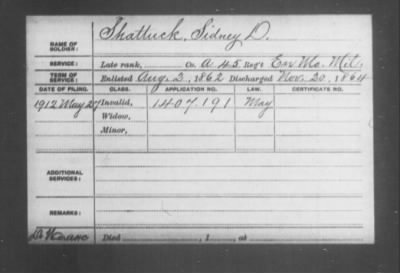 Shattuck, Sidney D.
NAME OF SOLDIER:
SERVICE: Late rank, Co. A 45 Reg't En. Mo. Mil.
TERM OF SERVICE: Enlisted Aug. 2, 1862 Discharged Nov. 20, 1864
DATE OF FILING. CLASS. APPLICATION NO. LAW. CERTIFICATE NO.
1912 May 27 Invalid, 1407,191 May
Widow,
Minor,
ADDITIONAL SERVICES:
REMARKS:
Died , 1 , at